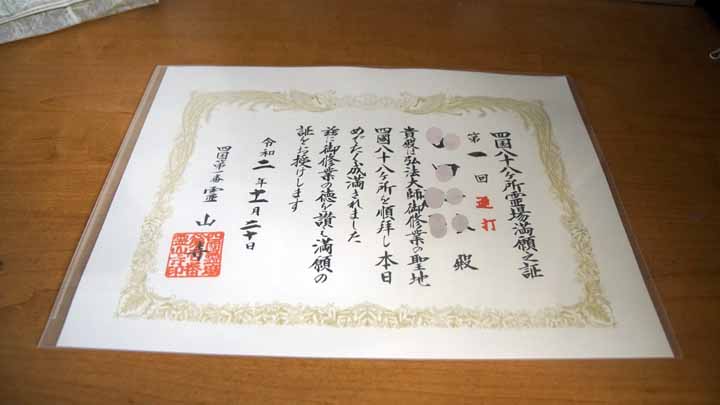 四國八十八ヶ所霊場満願之証
第一回 逆打
殿
貴殿は弘法大師御修業の聖地
四國八十八ヶ所を順拝し本日
めでたく成満されました
茲に御修業の徳を讃え満願の
証をお授けします
令和二年十一月二十日
四国第一番 霊山寺